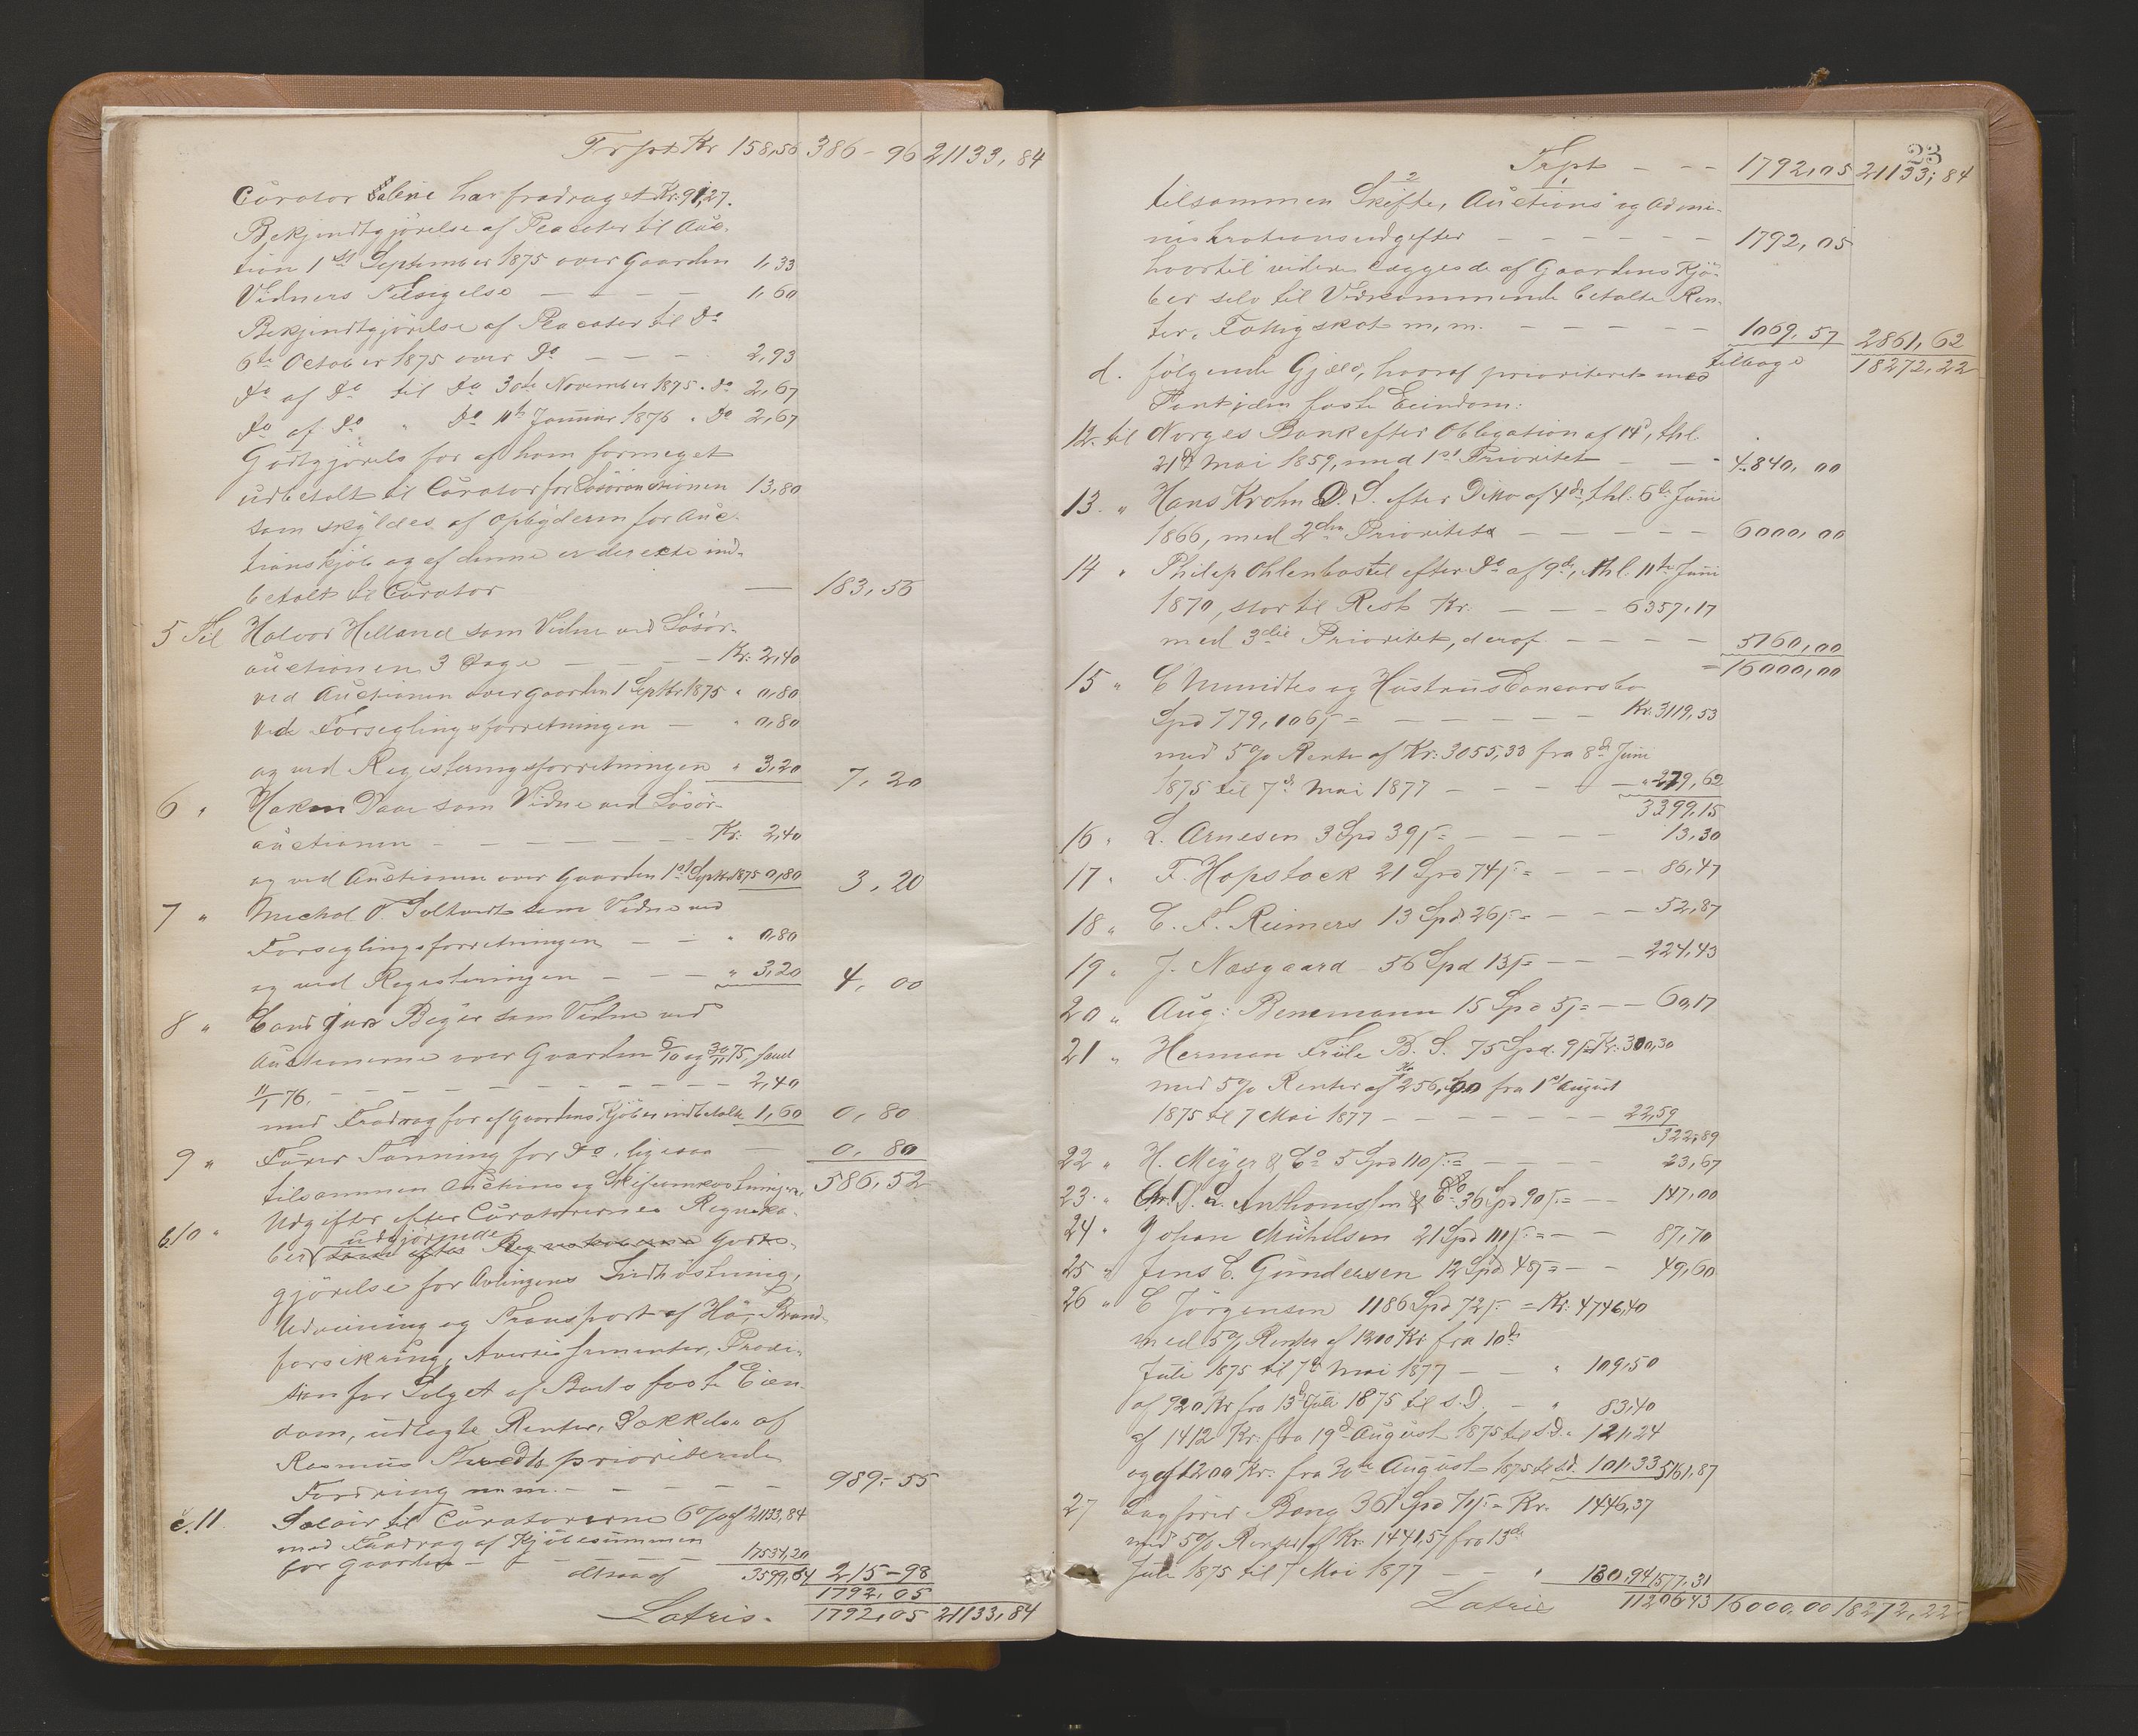 Trspt Kr 158,56 386-96 21133,84
Curator har fradraget Kr: 91,27.
Bekjendtgjörelse af Placater til Auc-
tion 1st September 1875 over Gaarden 1,33
Vidners Tilsigelse — — — — 1,60
Bekjendtgjörelse af Placater til Do
6te October 1875 over Do — — — 2,93
Do af Do til Do 30te November 1875 " Do 2,67
Do af Do " Do 11te Januar 1876 " Do 2,67
Godtgjörelse for af ham formeget
udbetalt til Curator for Lösöreauctionen 13,80
som skyldes af Opbyderen for Auc-
tionskjöb og af denne er directe ind-
betalt til Curator — 183,56
5 Til Halvor Helland som Vidne ved Lösör-
auctionen 3 Dage — — — Kr: 2,40
ved Auctionen over Gaarden 1 Septbr 1875 " 0,80
ved Forseglingsforretningen — " 0,80
og ved Registeringsforretningen " 3,20 7,20
6 " Hakon Daae som Vidne ved Lösör-
auctionen — — — — — — Kr: 2,40
og ved Auctionen over Gaarden 1st Septbr 1875 0,80 3,20
7 " Michal O. som Vidne ved
Forseglingsforretningen — — " 0,80
og ved Registeringen — — — " 3,20 4,00
8 " Cand jur: Beyer som Vidne ved
Auctionerne over Gaarden 6/10 og 30/11 75, samt
11/1 76. — — — — — — — — 2,40
med Fradrag for af Gaardens Kjöber indbetalte 1,60 0,80
9 " Fuhrer Sanning for Do, ligesaa — 0,80
tilsammen Auctions og Skifteomkostninger, 586,52
b.10 " Udgifter efter Curatorernes Regnska-
ber udgjörende Godt-
gjörelse for Avlingens Indhöstning,
Udveining og Transport af Hö, Brand-
forsikring, Avertissementer, Provi-
sion for Salget af Boets faste Eien-
dom, udlagte Renter, Dækkelse af
Rasmus prioriterede
Fordring m.m. — — — — 989-55
c.11. Salair til Curatorerne 6% af 21133,84
med Fradrag af Kjöbesummen
for Gaarden — — — 17534,20
altsaa af 3599,64 215-98
1792,05
Latris. 1792,05 21133,84
23
Trspt — — 1792,05 21133,84
tilsammen Skifte, Auctions og Admi-
nistrationsudgifter — — — — — — 1792,05
hvortil videre lægges de af Gaardens Kjö-
ber selv til Vedkommende betalte Ren-
ter, Fattigskat m.m. — — — — — 1069,57 2861,62
tilbage 18272,22
d. følgende Gjæld, hvoraf prioriteret med
Pant i den faste Eiendom:
12. til Norges Bank efter Obligation af 14d, thl.
21d Mai 1859, med 1st Prioritet — — 4.840,00
13. " Hans Krohn D. S. efter Ditto af 4de, thl: 6te Juni
1866, med 2den Prioritet — — — — — 6000,00
14 " Philip Ohlenbostel efter Do af 9de, thl. 11te Juni
1870, stor til Rest Kr: — — — 6357,17
med 3die Prioritet, deraf — — — — 5160,00
= 16000,00
15 " C Mundtes og Hustrus Concursbo
Spd 779,106 ß = — — — — — — Kr. 3119,53
med 5% Rente af Kr: 3055,33 fra 8d Juni
1875 til 7d Mai 1877 — — — — " 279,62
3399,15
16 " L. Arnesen 3 Spd 39 ß = — — — 13,30
17 " F. Hopstock 21 Spd 74 ß = — — — 86,47
18 " C. F. Reimers 13 Spd 26 ß = — — — 52,87
19 " J. Næsgaard 56 Spd 13 ß = — — — 224,43
20 " Aug: Benemann 15 Spd 5 ß = — — 60,17
21 " Herman Friele B. S. 75 Spd. 9 ß = Kr: 300,30
med 5% Renter af Kr 256,00 fra 1st August
1875 til 7 Mai 1877 — — — — — — — 22,59
322,89
22 " H. Meyer & Co 5 Spd 110 ß = — — — — 23,67
23 " Chr. G. L. Anthonissen & Co 36 Spd 90 ß = — — 147,00
24 " Johan Michelsen 21 Spd 111 ß = — — 87,70
25 " Jens C. Gundersen 12 Spd 48 ß = — — 49,60
26 " C Jörgensen 1186 Spd 72 ß = Kr: 4746,40
med 5% Renter af 1200 Kr fra 10de
Juli 1875 til 7d Mai 1877 — — " 109,50
af 920 Kr fra 13d Juli 1875 til s.D. — " 83,40
af 1412 Kr. fra 19d August 1875 til s.D. " 121,24
og af 1200 Kr. fra 30te August 1875 til s.D. 101,33 5161,87
27 Sagförer Bang 361 Spd 71 ß = Kr. 1446,37
med 5% Renter af Kr 1441,57 fra 13de
Juli 1875 til 7 Mai 1877 — — " 130,94 1577,31
Latris 11206,43 16000,00 18272,22